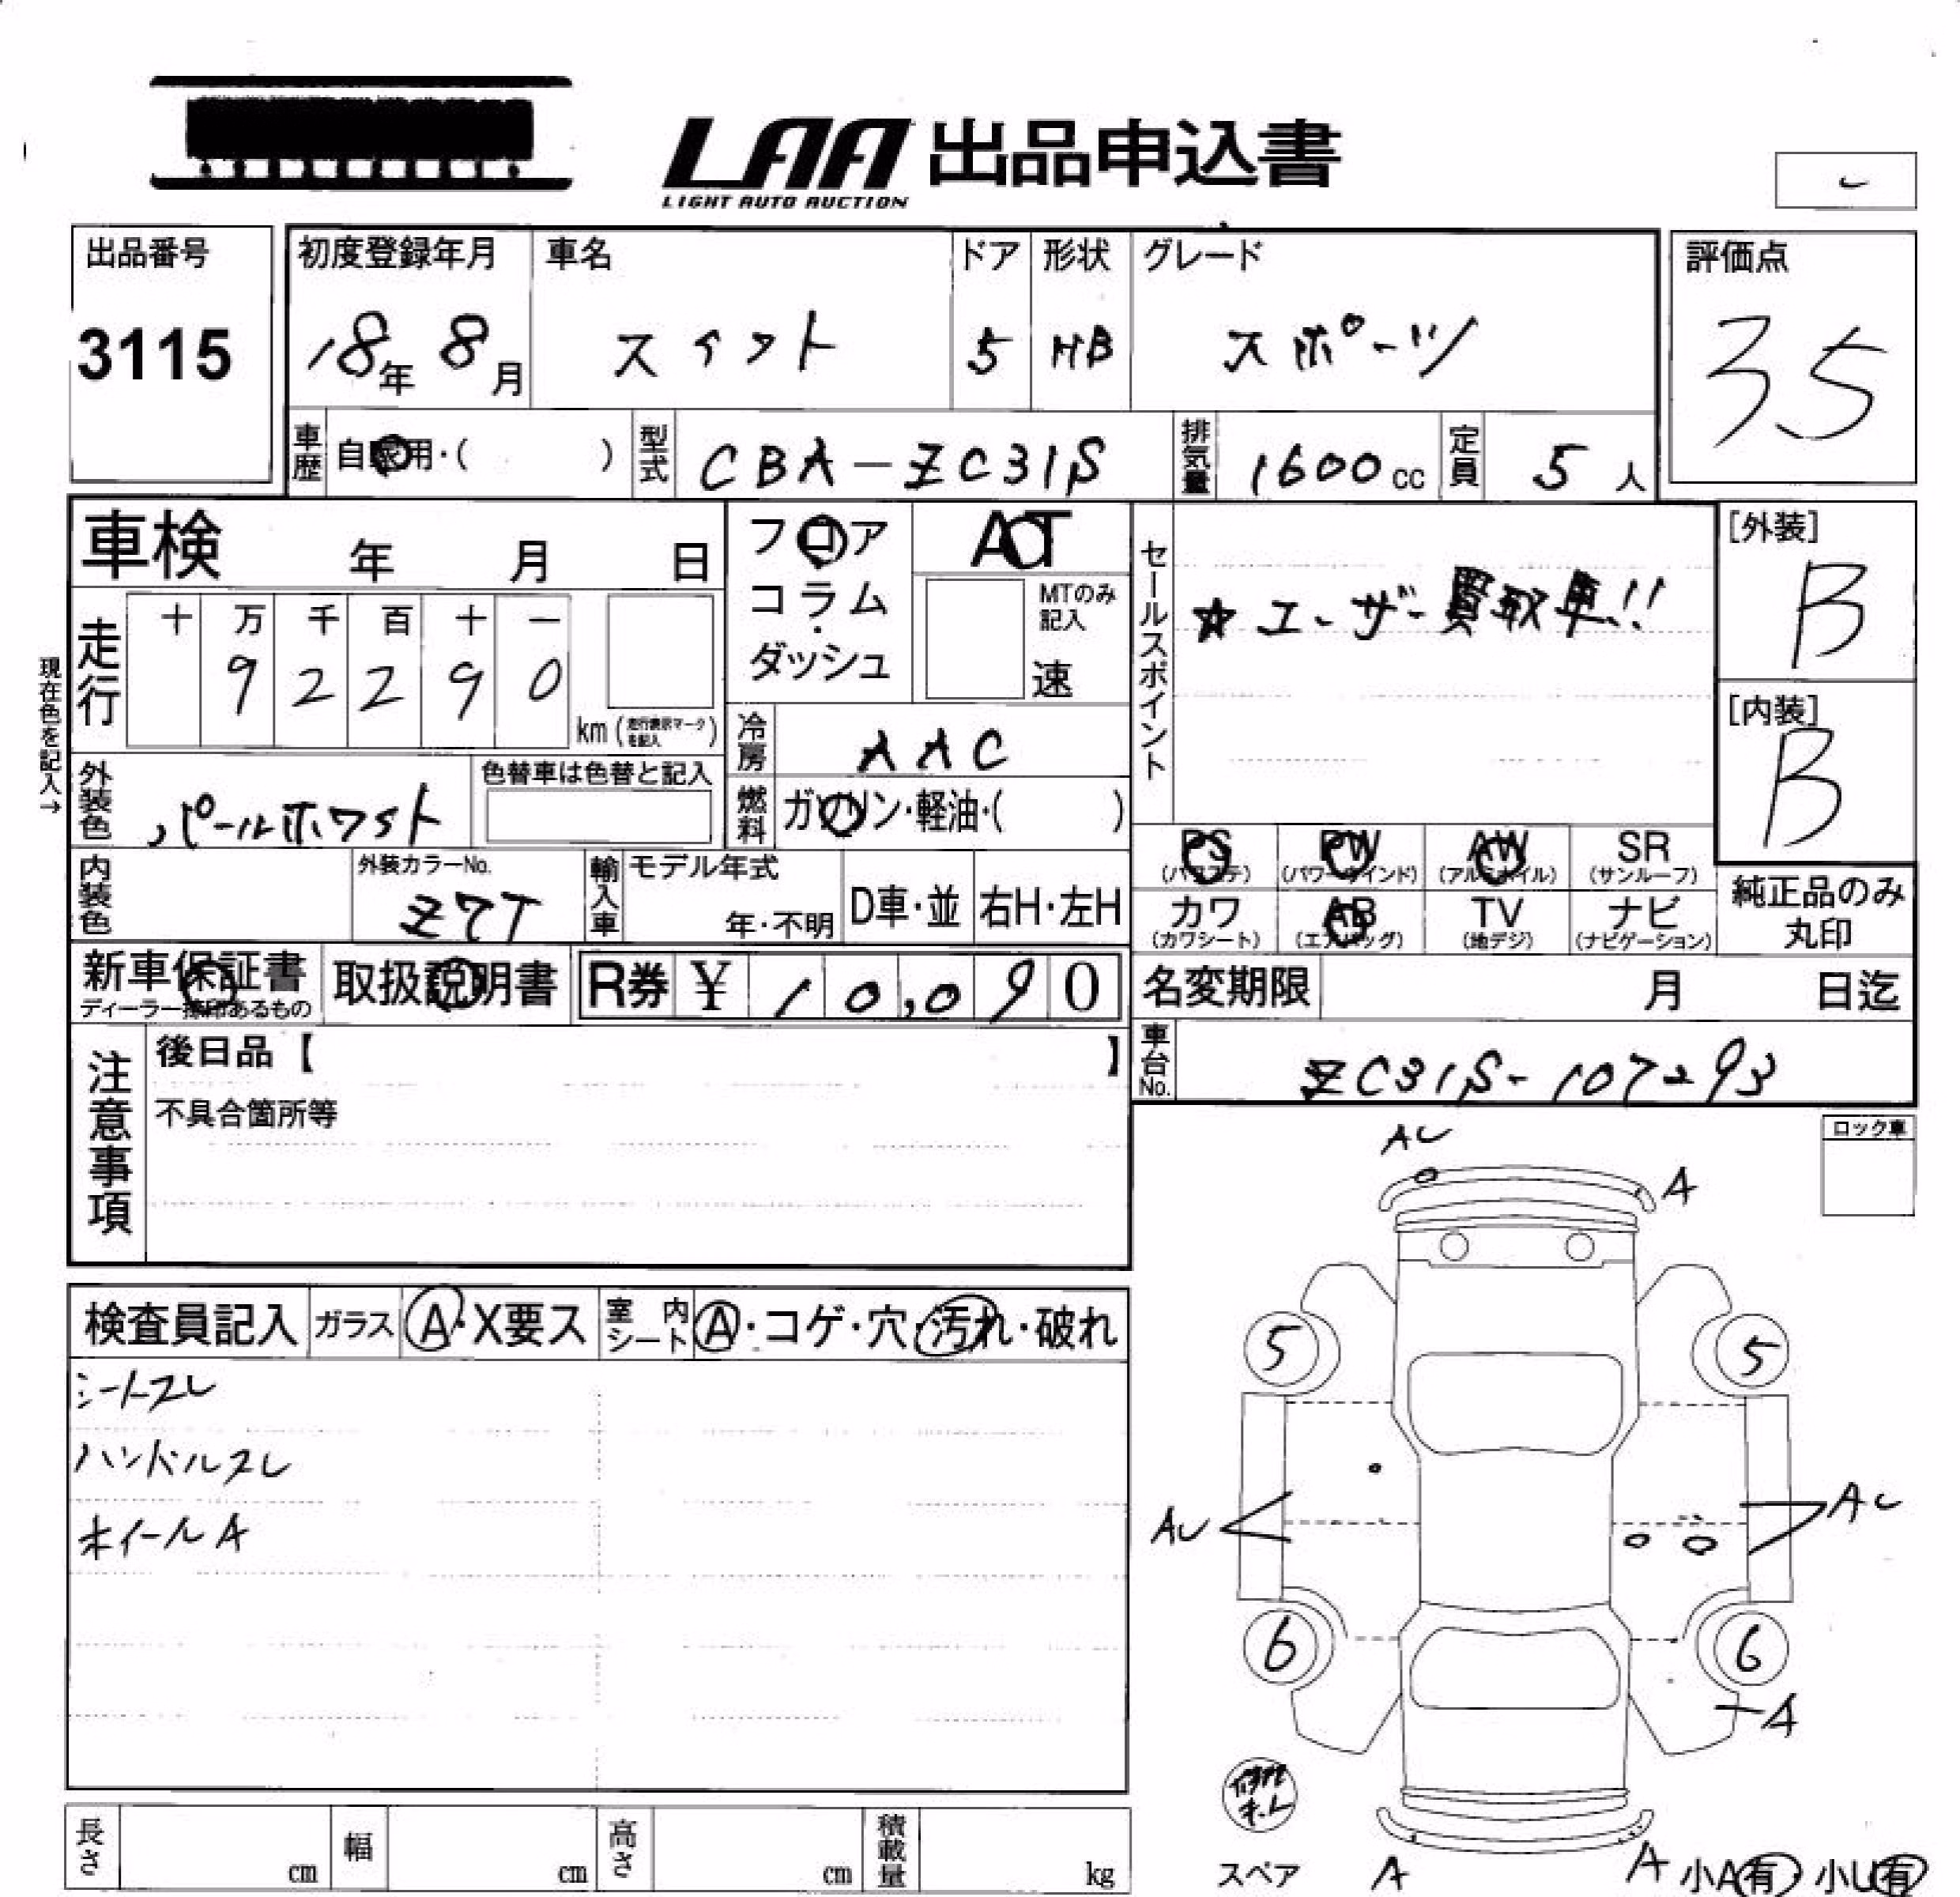 LAA 出品申込書
LIGHT AUTO AUCTION
出品番号
3115
初度登録年月
18年 8月
車名
スイフト
ドア
5
形状
HB
グレード
スポーツ
評価点
35
車歴 自家用・( )
型式 CBA-ZC31S
排気量 1600cc
定員 5人
車検 年 月 日
フロア
コラム
・
ダッシュ
AT
MTのみ
記入
速
セールスポイント
☆ユーザー買取車!!
[外装]
B
[内装]
B
現在色を記入→
走行
十 万 千 百 十 一
9 2 2 9 0
km (走行表示マークを記入)
冷房 AAC
外装色 パールホワイト
色替車は色替と記入
燃料 ガソリン・軽油・( )
PS (パワステ)
PW (パワーウインド)
AW (アルミホイル)
SR (サンルーフ)
カワ (カワシート)
AB (エアバッグ)
TV (地デジ)
ナビ (ナビゲーション)
純正品のみ
丸印
内装色
外装カラーNo.
Z7T
輸入車
モデル年式
年・不明
D車・並
右H・左H
新車保証書
ディーラー捺印あるもの
取扱説明書
R券 ¥ 10,090
名変期限 月 日迄
車台No. ZC31S-107293
注意事項
後日品【 】
不具合箇所等
ロック車
AU
A
検査員記入
ガラス A・X要ス
室内シート A・コゲ・穴・汚れ・破れ
シートスレ
ハンドルスレ
ホイールA
5
5
AU
AU
6
6
A
スペア
A
A
小A有・小U有
長さ cm
幅 cm
高さ cm
積載量 kg